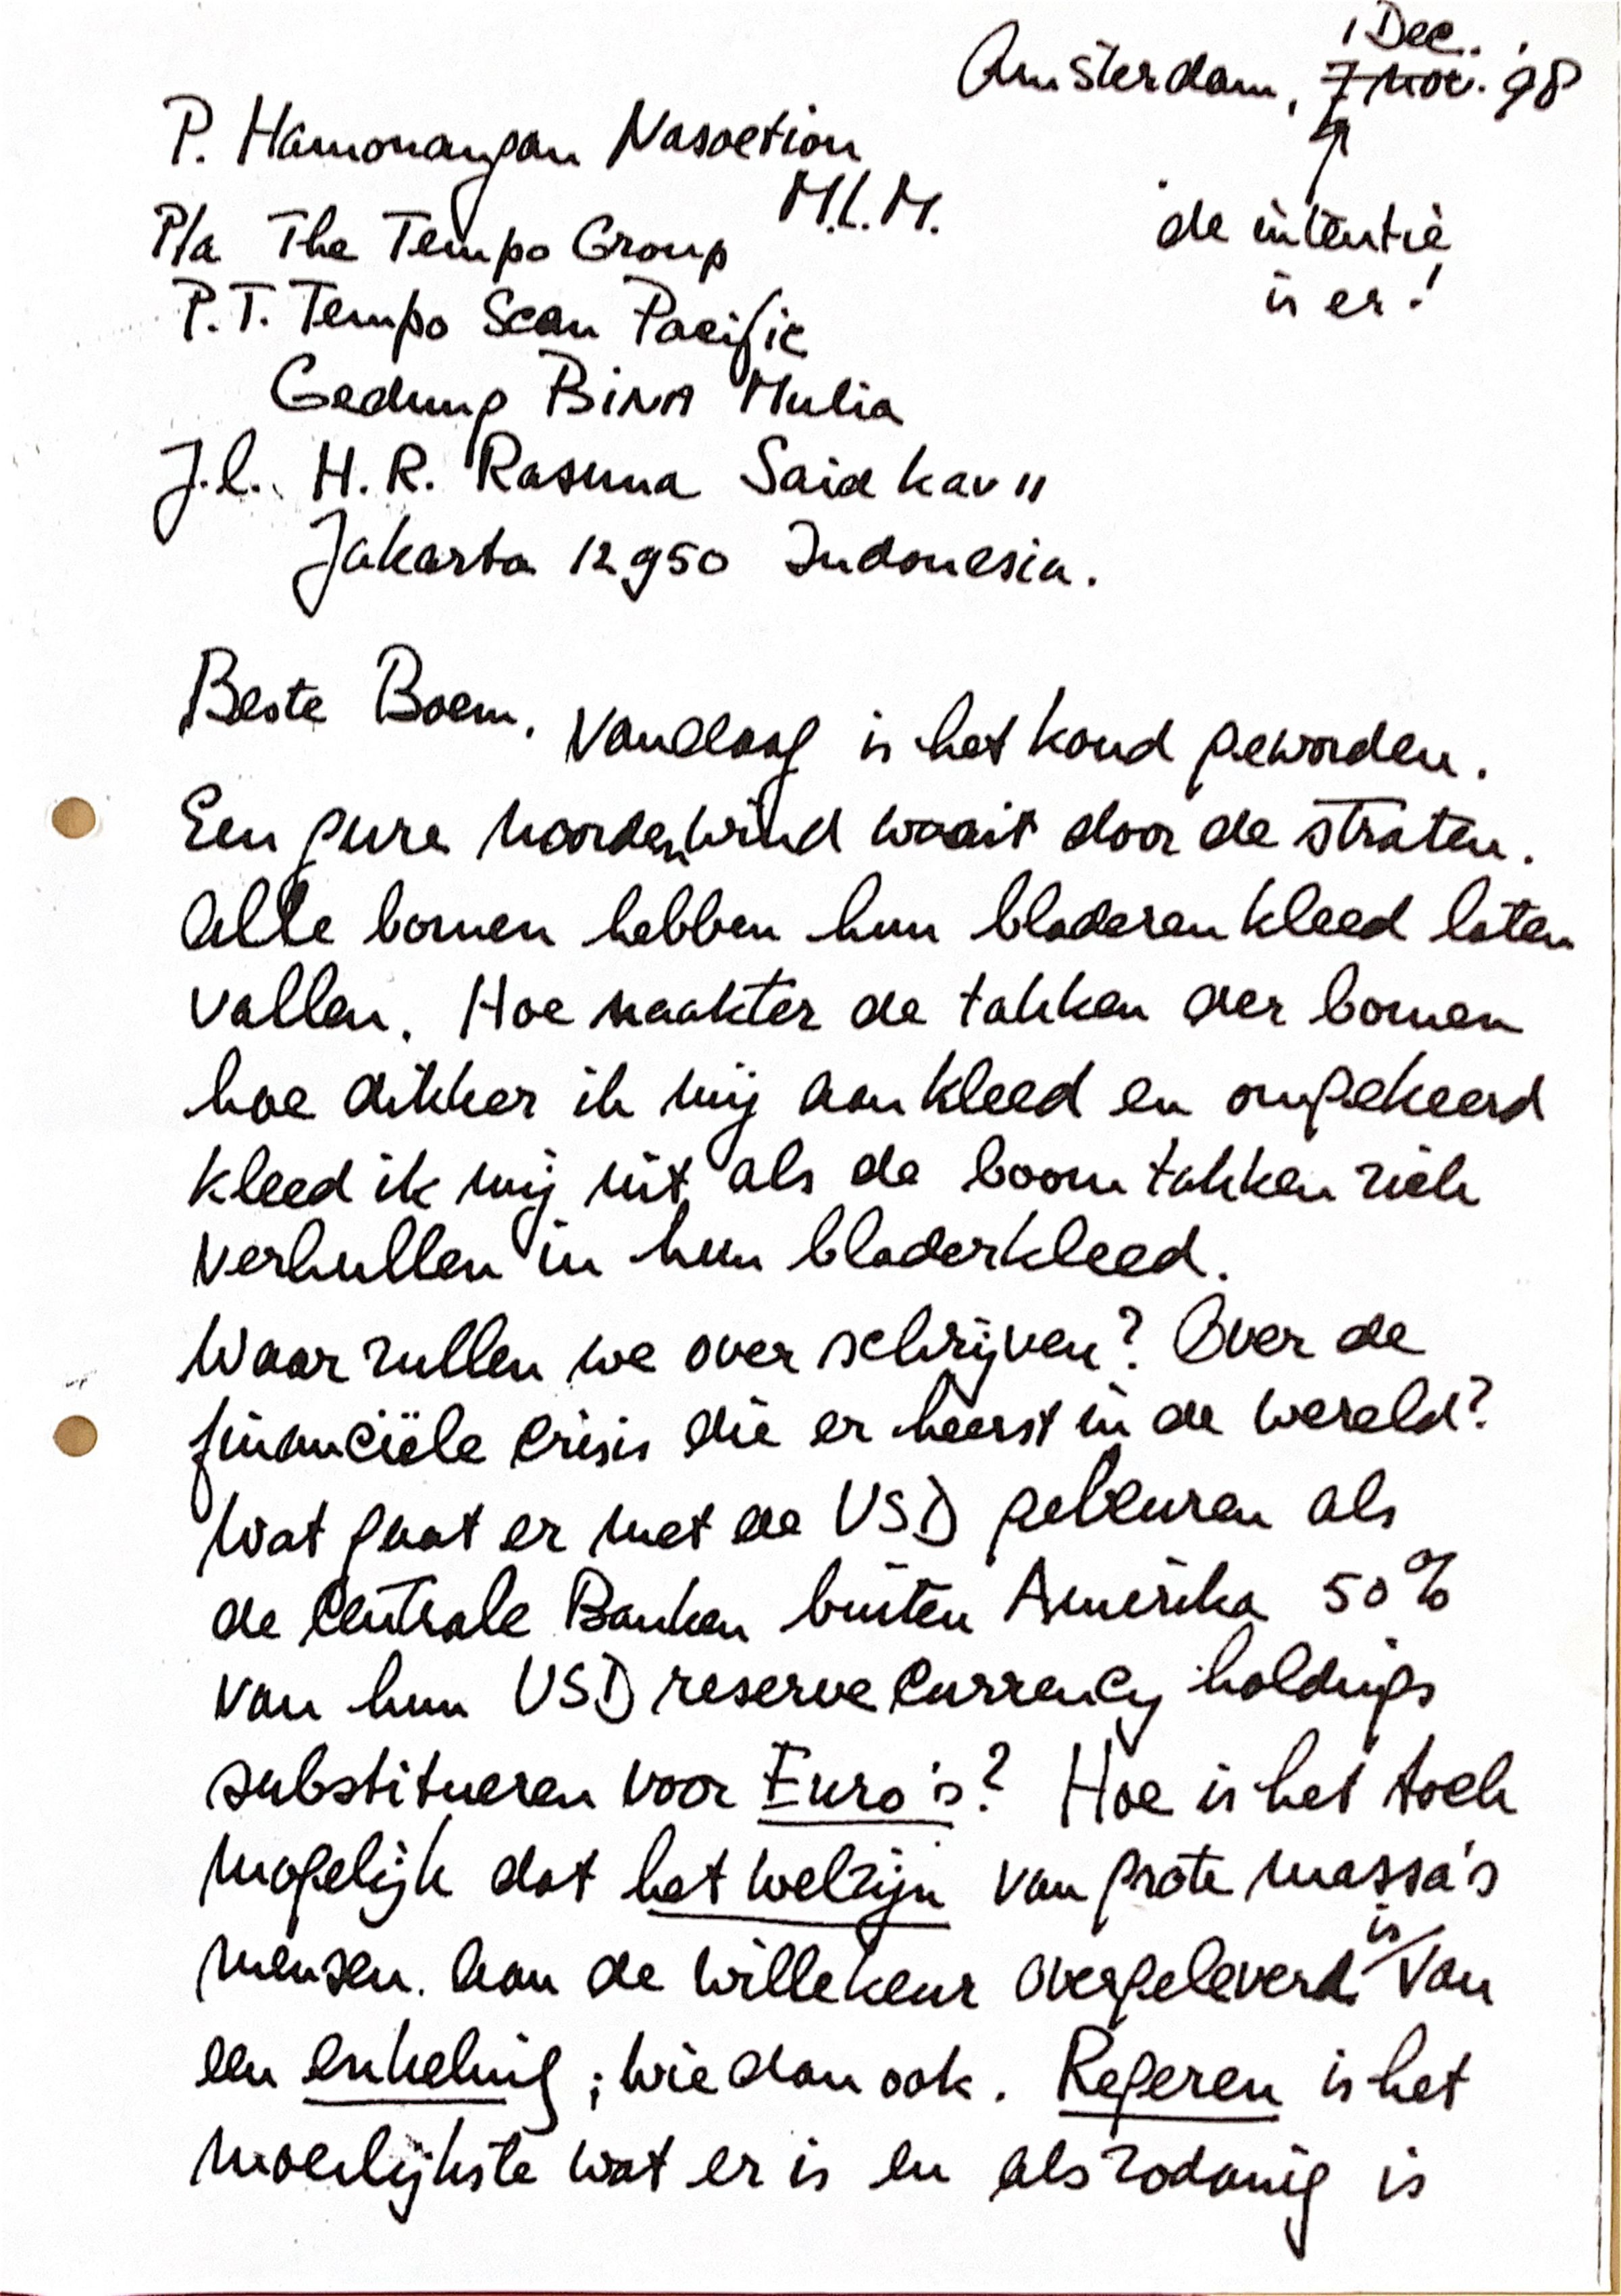 1 Dec.
Amsterdam, 7 nov. '98
P. Hamonangan Nasoetion
M.L.M.
P/a The Tempo Group
de intentie
is er!
P.T. Tempo Scan Pacific
Gedung BINA Mulia
J.l. H.R. Rasuna Said kav 11
Jakarta 12950 Indonesia.
Beste Boem, Vandaag is het koud geworden.
Een gure noordenwind waait door de straten.
Alle bomen hebben hun bladerenkleed laten
vallen. Hoe naakter de takken der bomen
hoe dikker ik mij aankleed en omgekeerd
kleed ik mij uit als de boomtakken zich
verhullen in hun bladerkleed.
Waar zullen we over schrijven? Over de
financiële crisis die er heerst in de wereld?
Wat gaat er met de USD gebeuren als
de Centrale Banken buiten Amerika 50%
van hun USD reserve currency holdings
substitueren voor Euro's? Hoe is het toch
mogelijk dat het welzijn van grote massa's
mensen aan de willekeur overgeleverd is van
een enkeling; wie dan ook. Regeren is het
moeilijkste wat er is en als zodanig is